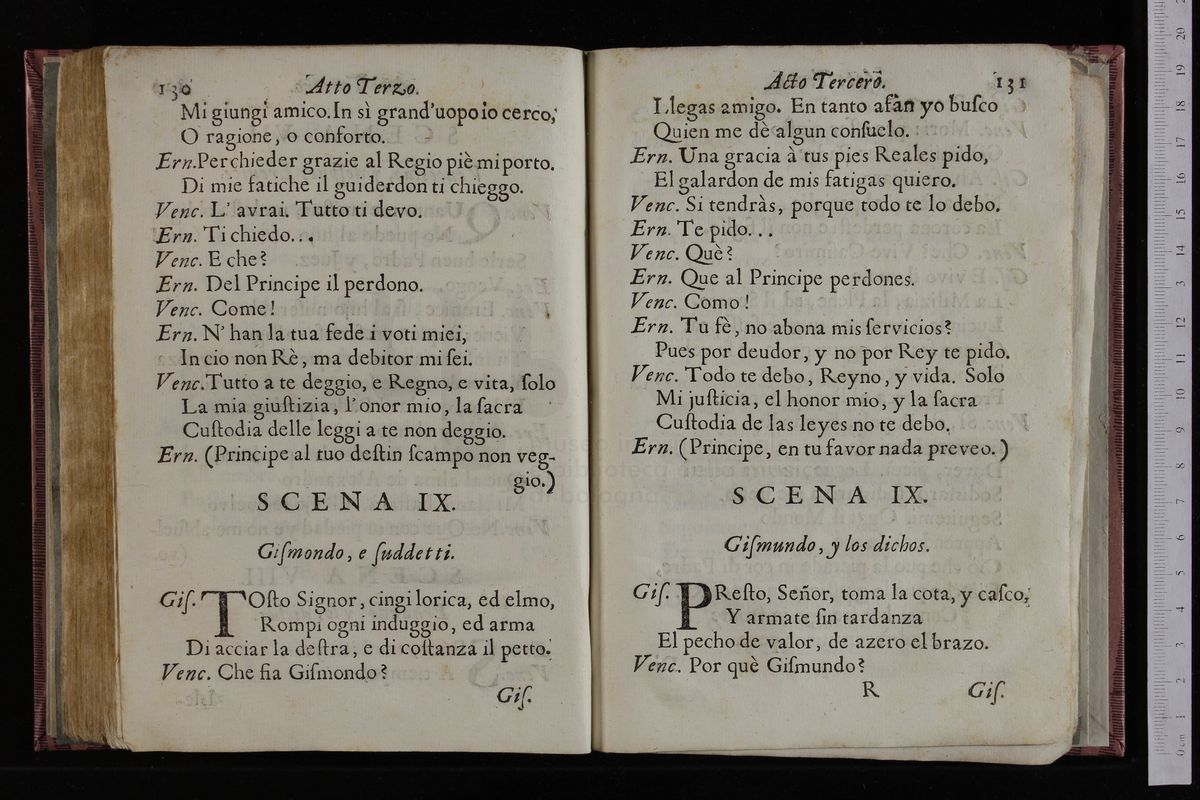 130 Atto Terzo.
Mi giungi amico. In sì grand'uopo io cerco,
O ragione, o conforto.
Ern. Per chieder grazie al Regio piè mi porto.
Di mie fatiche il guiderdon ti chieggo.
Venc. L' avrai. Tutto ti devo.
Ern. Ti chiedo...
Venc. E che?
Ern. Del Principe il perdono.
Venc. Come!
Ern. N' han la tua fede i voti miei,
In cio non Rè, ma debitor mi sei.
Venc. Tutto a te deggio, e Regno, e vita, ſolo
La mia giuſtizia, l'onor mio, la ſacra
Cuſtodia delle leggi a te non deggio.
Ern. (Principe al tuo deſtin ſcampo non veg-
gio.)
SCENA IX.
Giſmondo, e ſuddetti.
Giſ. TOſto Signor, cingi lorica, ed elmo,
Rompi ogni induggio, ed arma
Di acciar la deſtra, e di coſtanza il petto.
Venc. Che fia Giſmondo?
Giſ.
Acto Tercero. 131
Llegas amigo. En tanto afàn yo buſco
Quien me dè algun conſuelo.
Ern. Una gracia à tus pies Reales pido,
El galardon de mis fatigas quiero.
Venc. Si tendràs, porque todo te lo debo.
Ern. Te pido...
Venc. Què?
Ern. Que al Principe perdones.
Venc. Como!
Ern. Tu fè, no abona mis ſervicios?
Pues por deudor, y no por Rey te pido.
Venc. Todo te debo, Reyno, y vida. Solo
Mi juſticia, el honor mio, y la ſacra
Cuſtodia de las leyes no te debo.
Ern. (Principe, en tu favor nada preveo.)
SCENA IX.
Giſmundo, y los dichos.
Giſ. PReſto, Señor, toma la cota, y caſco,
Y armate ſin tardanza
El pecho de valor, de azero el brazo.
Venc. Por què Giſmundo?
R Giſ.
0 cm 1 2 3 4 5 6 7 8 9 10 11 12 13 14 15 16 17 18 19 20